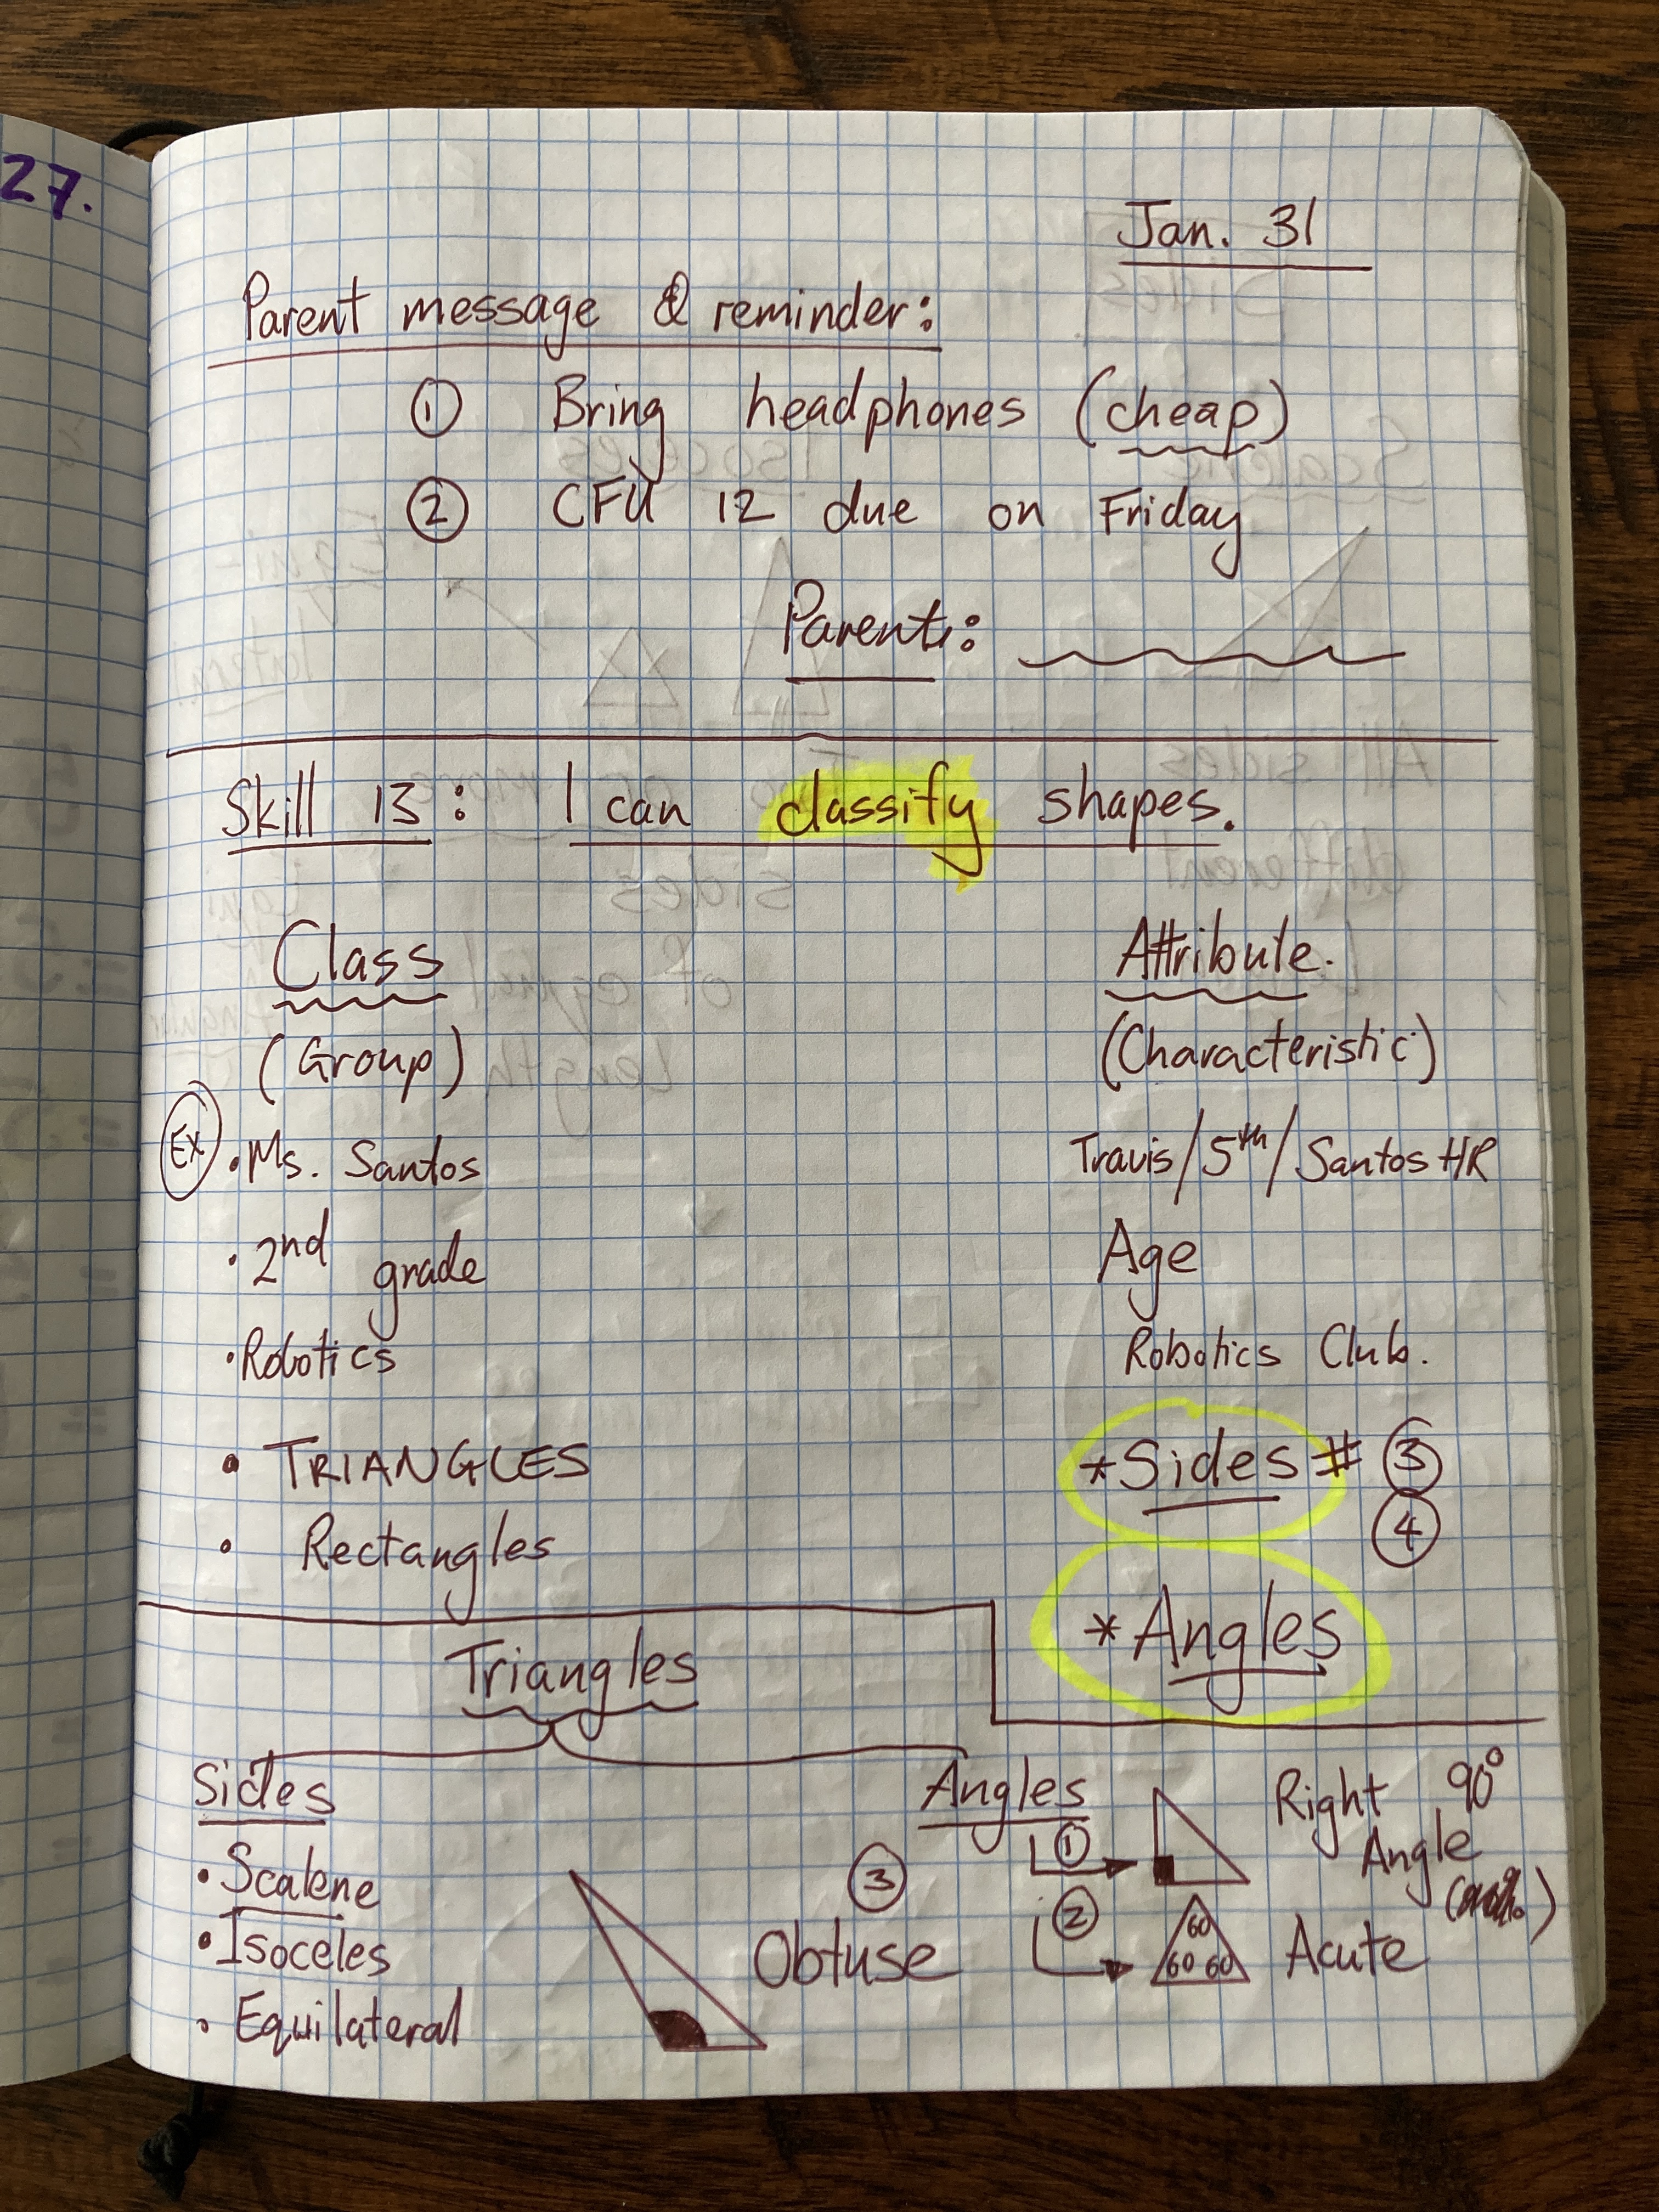 27.
Jan. 31
Parent message & reminder:
① Bring headphones (cheap)
② CFU 12 due on Friday
Parent:
Skill 13: I can classify shapes.
Class Attribute.
(Group) (Characteristic)
Ex • Ms. Santos Travis/5th/Santos HR
• 2nd grade Age
• Robotics Robotics Club.
• TRIANGLES *Sides # ③
④
• Rectangles
*Angles
Triangles
Sides Angles
① Right 90°
Angle
• Scalene
• Isoceles
• Equilateral
③
Obtuse
② 60 60 60 Acute